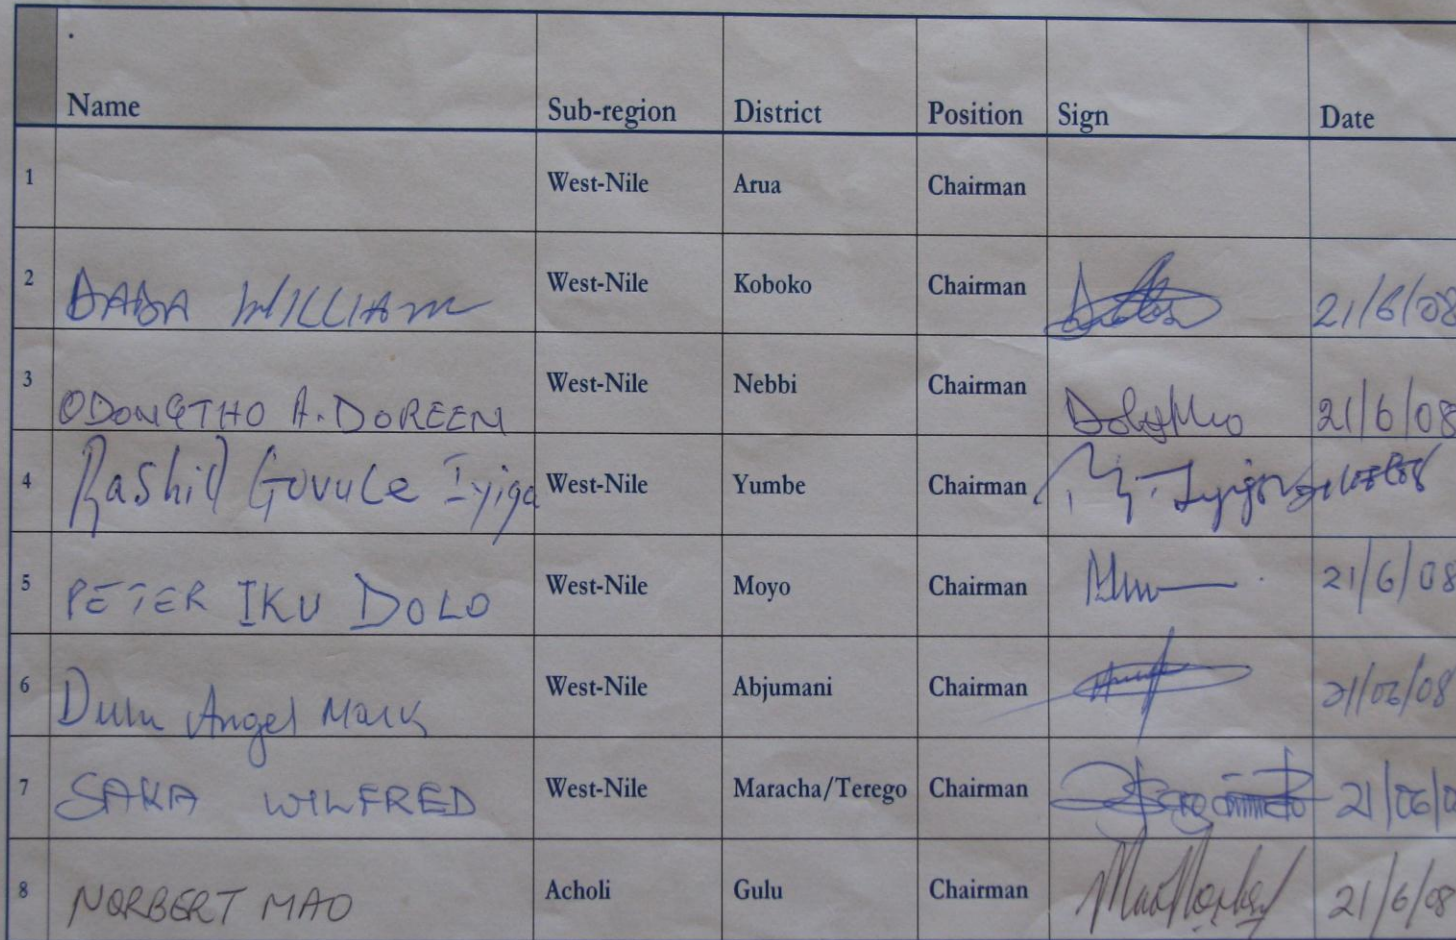 Name Sub-region District Position Sign Date
1 West-Nile Arua Chairman
2 DABA WILLIAM West-Nile Koboko Chairman 21/6/08
3 ODONGTHO A. DOREEN West-Nile Nebbi Chairman 21/6/08
4 Rashid Govule Iyiga West-Nile Yumbe Chairman
5 PETER IKU DOLO West-Nile Moyo Chairman 21/6/08
6 Dulu Angel Mark West-Nile Abjumani Chairman 21/06/08
7 SAKA WILFRED West-Nile Maracha/Terego Chairman 21/06/0
8 NORBERT MAO Acholi Gulu Chairman 21/6/08